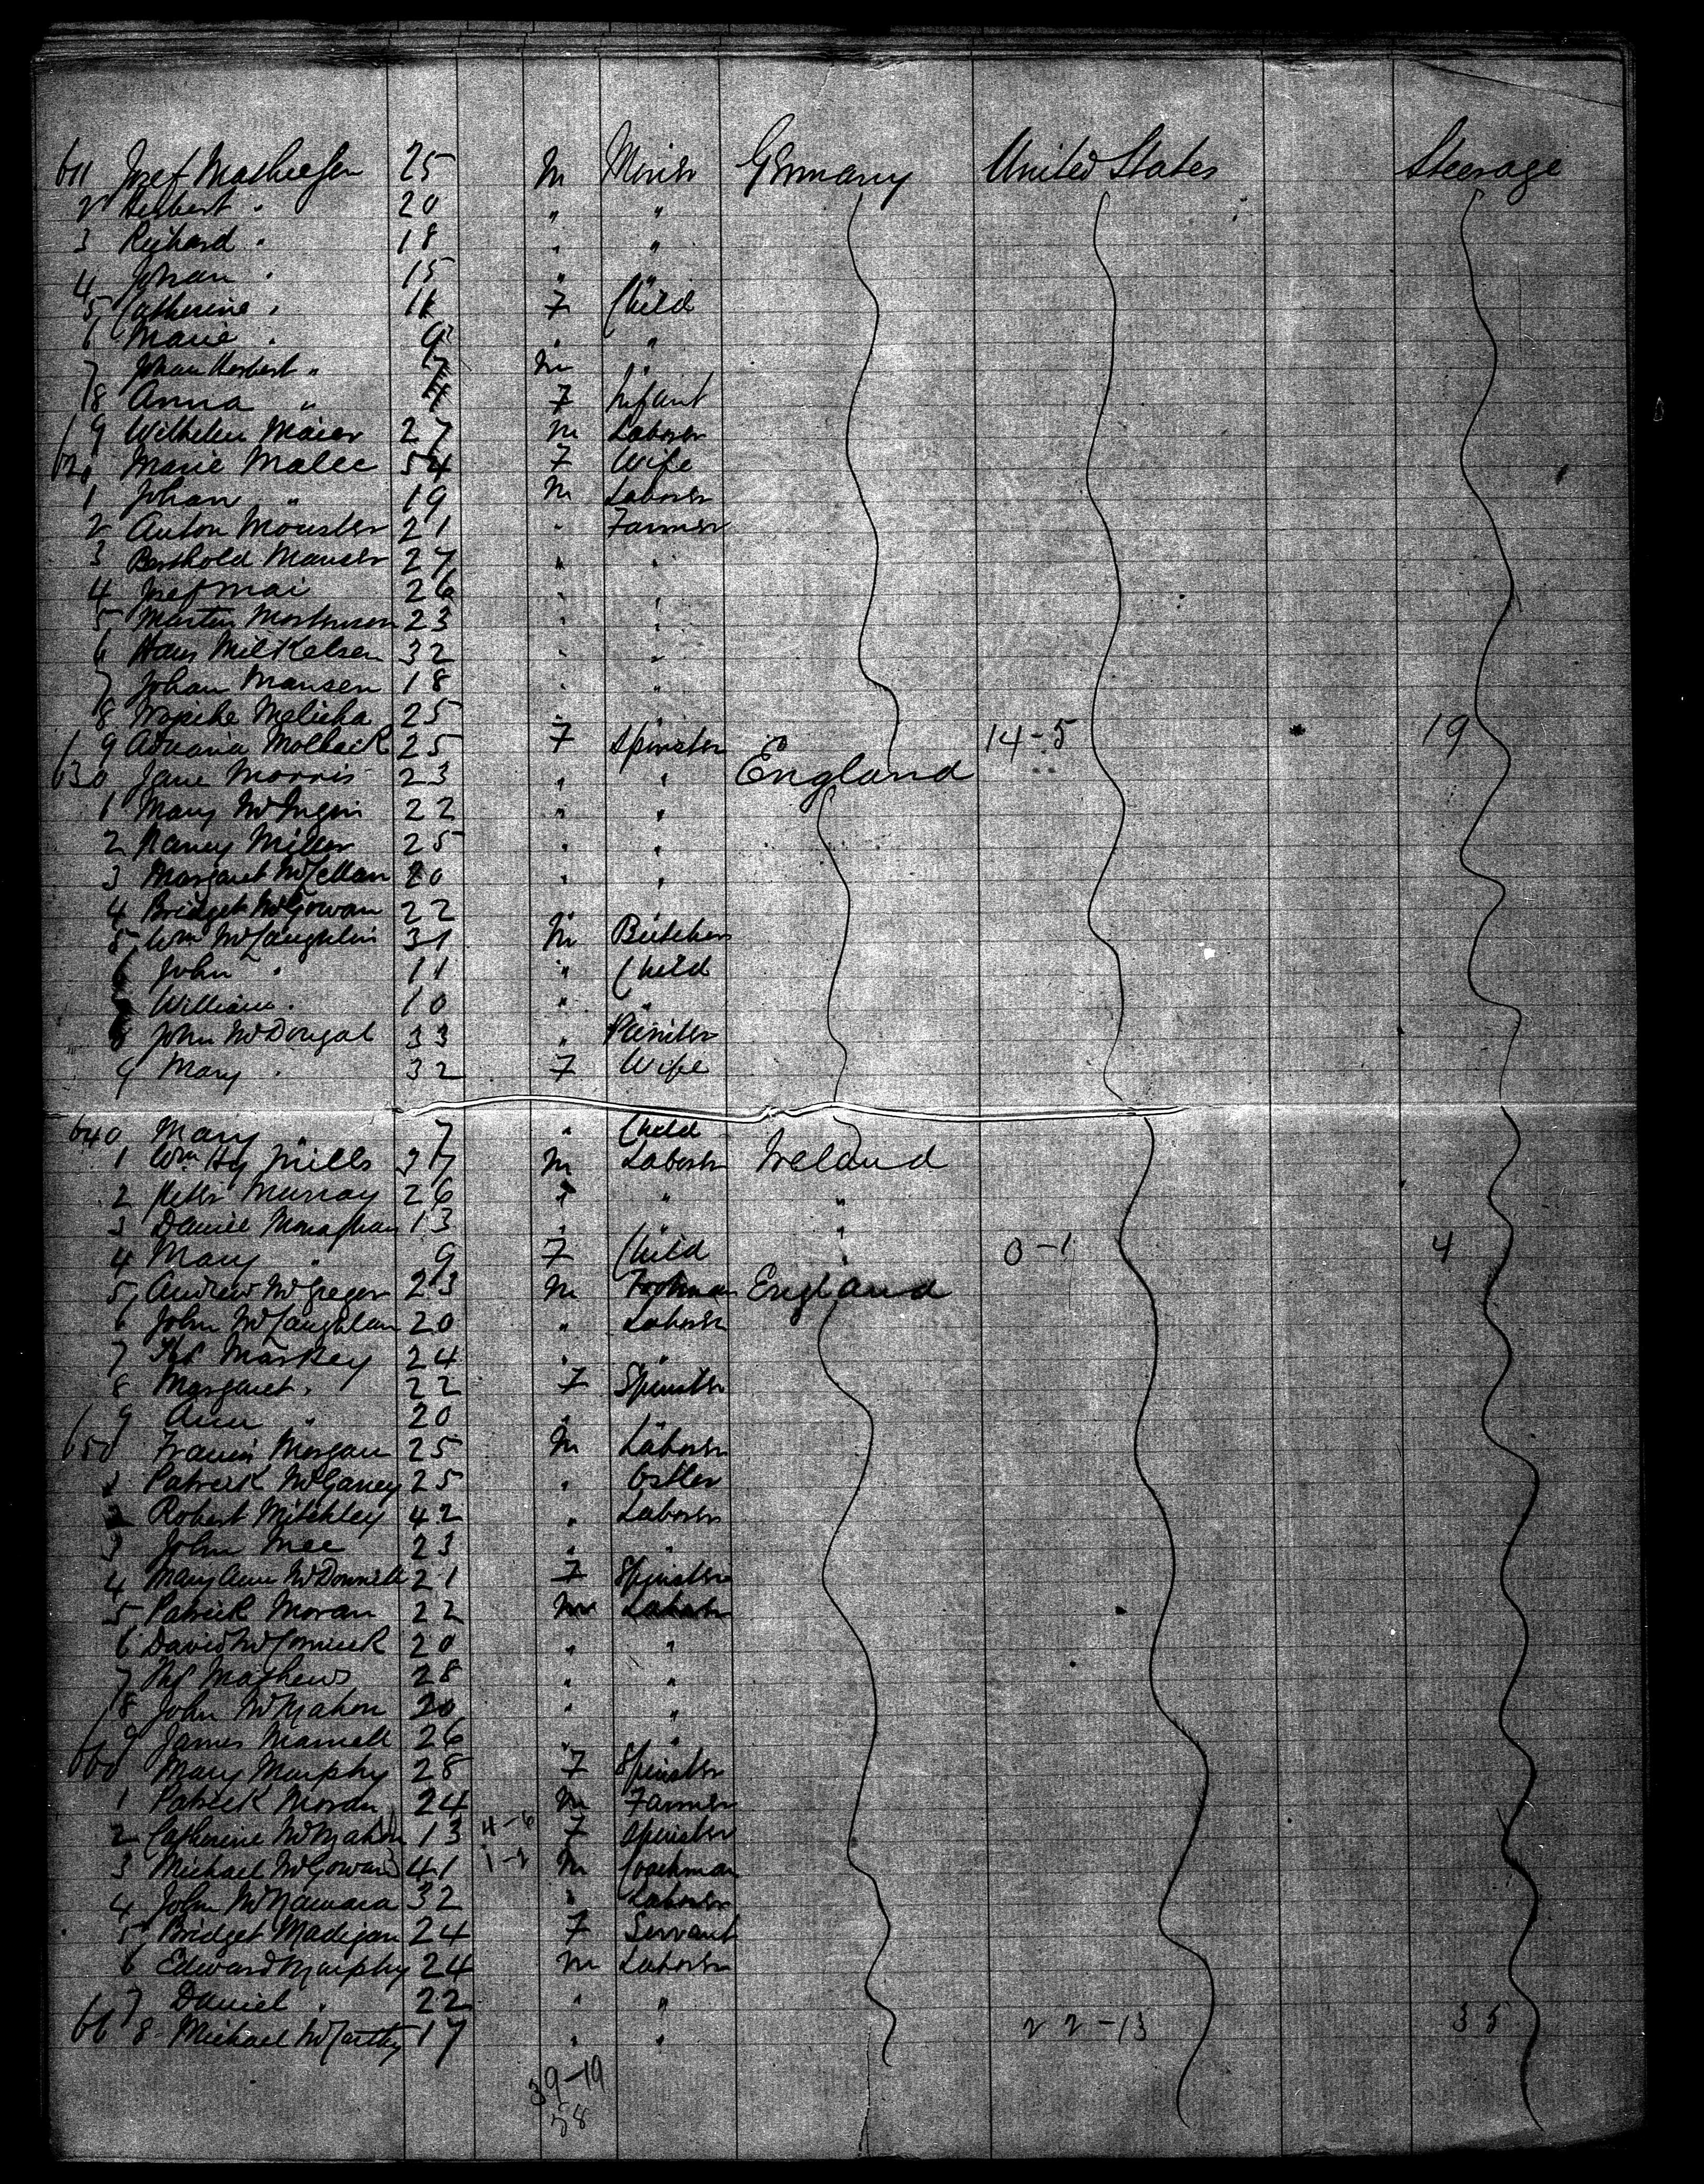 611 Josef Mathiesen 25 M Miner Germany United States Steerage
2 Herbert " 20 " "
3 Richard " 18 " "
4 Johan " 15 " "
5 Catherine " 11 F Child
6 Marie " 9 " "
7 Johan Herbert " M "
8 Anna " F Infant
9 Wilhelm Maier 27 M Laborer
620 Marie Malec 54 F Wife
1 Johan " 19 M Laborer
2 Anton Mouster 21 " Farmer
3 Berthold Manser 27 " "
4 Josef Mai 26 " "
5 Martin Mortensen 23 " "
6 Hans Mikkelsen 32 " "
7 Johan Mansen 18 " "
8 Melicha 25 " "
9 Molback 25 F Spinster 14-5 19
630 Jane Morris 23 " " England
1 Mary 22 " "
2 Nancy Miller 25 " "
3 Margaret McLellan 20 " "
4 Bridget McGowan 22 " "
5 Wm McLaughlin 31 M Butcher
6 John " 11 " Child
7 William " 10 " "
8 John McDougal 33 " Painter
9 Mary " 32 F Wife
640 Mary " 7 " Child
1 Wm Hy Mills 37 M Laborer Ireland
2 Peter Murray 26 " " "
3 Daniel Monaghan 13 " " "
4 Mary " 9 F Child " 0-1 4
5 Andrew McGregor 23 M England
6 John McLaughlan 20 " Laborer
7 Ths Markey 24 " "
8 Margaret " 22 F Spinster
9 Ann " 20 " "
650 Francis Morgan 25 M Laborer
1 Patrick McGarvey 25 " Ostler
2 Robert Mitchley 42 " Laborer
3 John Mee 23 " "
4 Mary Ann McDonnell 21 F Spinster
5 Patrick Moran 22 M Laborer
6 David McCormick 20 " "
7 Ths Mathews 28 " "
8 John McMahon 20 " "
9 James 26 " "
660 Mary Murphy 28 F Spinster
1 Patrick Moran 24 M Farmer
2 Catherine McMahon 13 4-6 F Spinster
3 Michael McGowan 41 M Coachman
4 John McNamara 32 " Laborer
5 Bridget Madigan 24 F Servant
6 Edward Murphy 24 M Laborer
7 Daniel " 22 " "
668 Michael McCarthy 17 " " 22-13 35
39-19
58